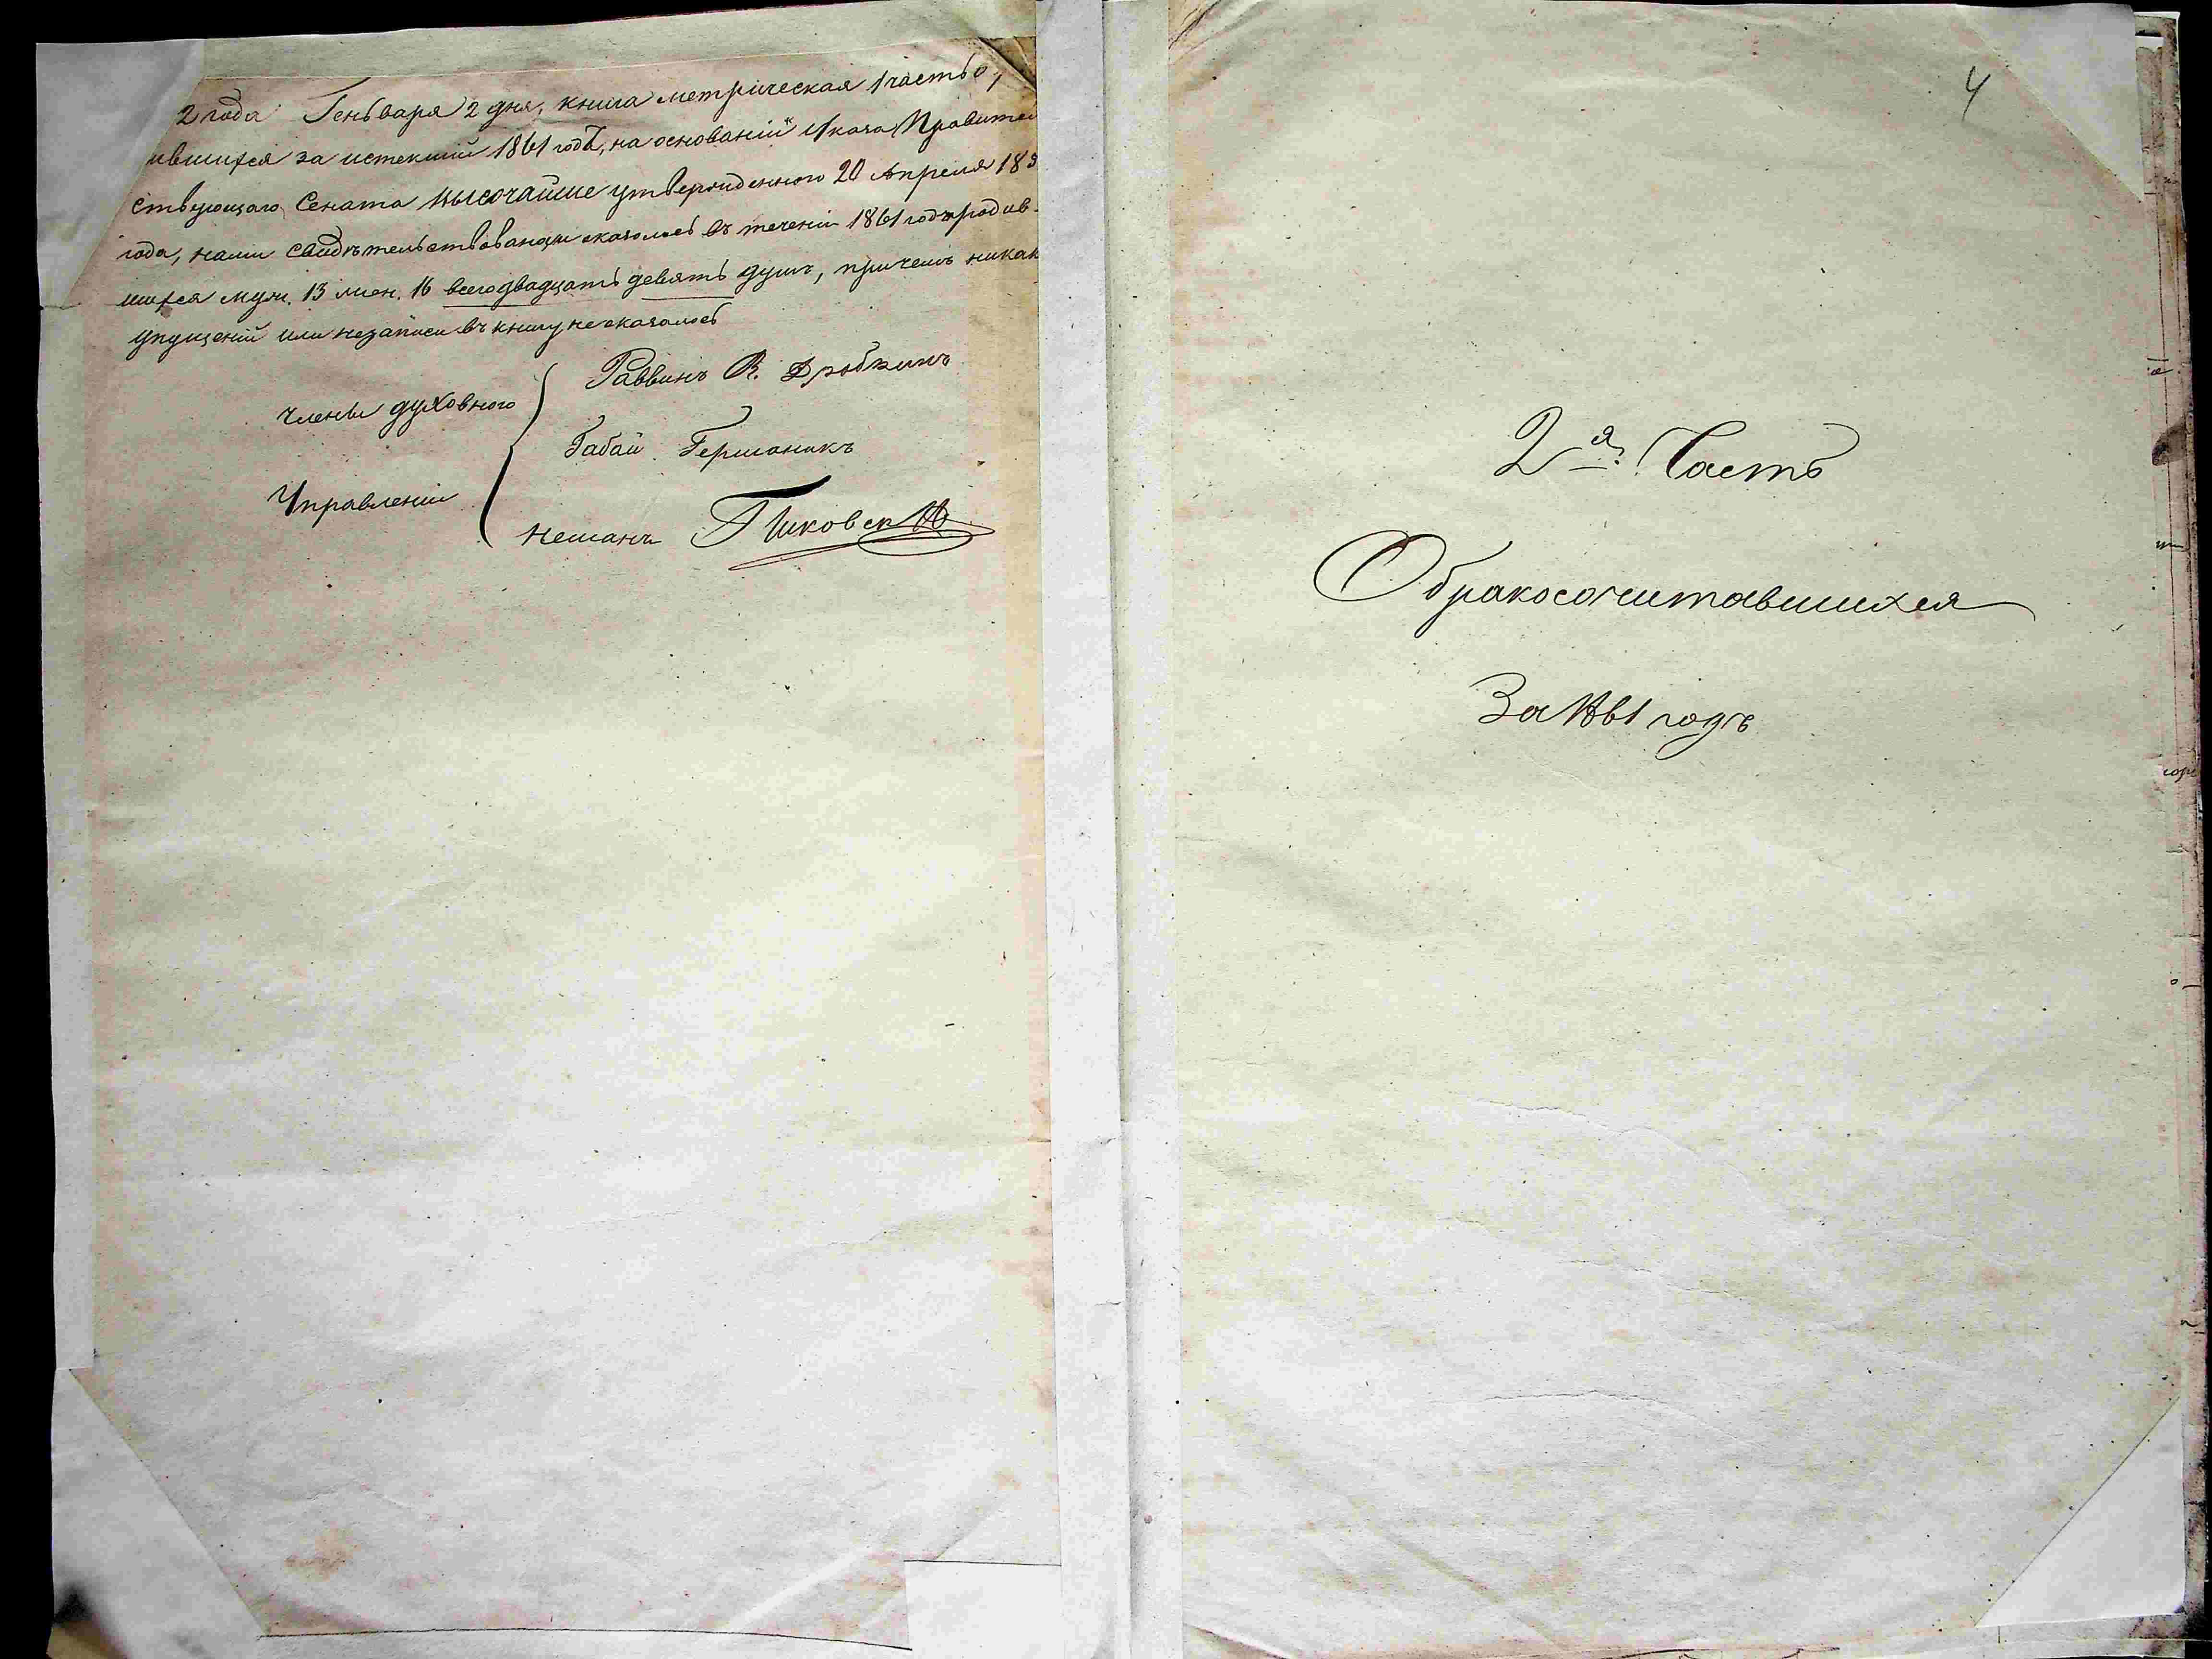 2 года Генваря 2 дня, книга метрическая 1 часть о
ившихся за истекший 1861 годъ, на основаніи Указа Правител
ствующаго Сената Высочайше утвержденного 20 Апреля 183
года, нами свидѣтельствована и оказалось въ теченіи 1861 года родив-
шихся муж. 13 жен. 16 всего двадцать девять душъ, причемъ никак
упущеній или незаписи въ книгу не оказалось
Члены духовного
Управленія
Раввинъ В. Дробкинъ
Габай Гершаникъ
Неманъ
4
2я. Часть
О бракосочитавшихся
За 1861 годъ